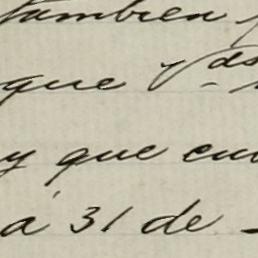 tambien
que Vdas
y que
á 31 de